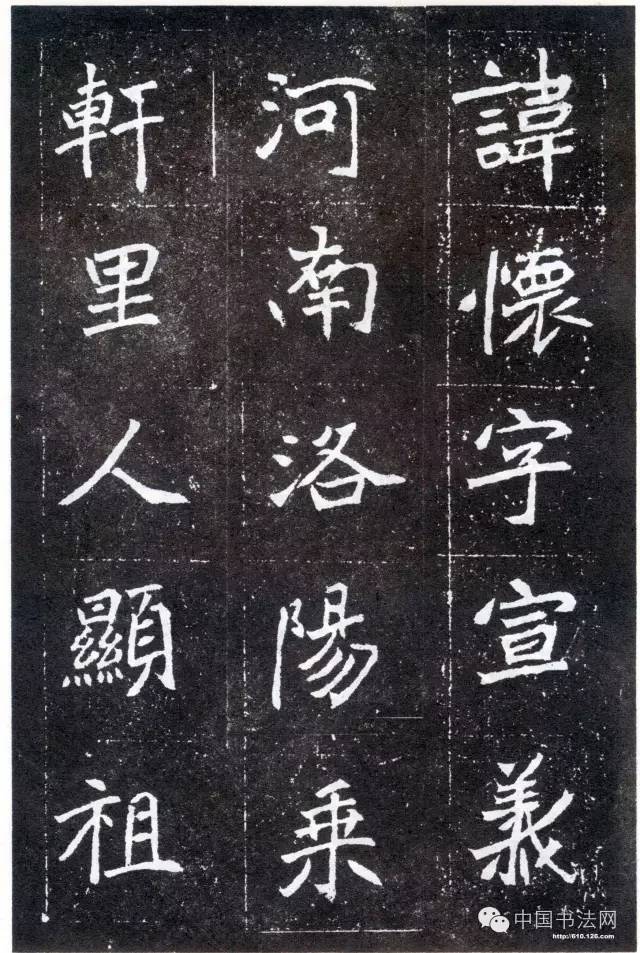 諱懷字宣義
河南洛陽乗
軒里人顯祖
中国书法网
http://610.126.com